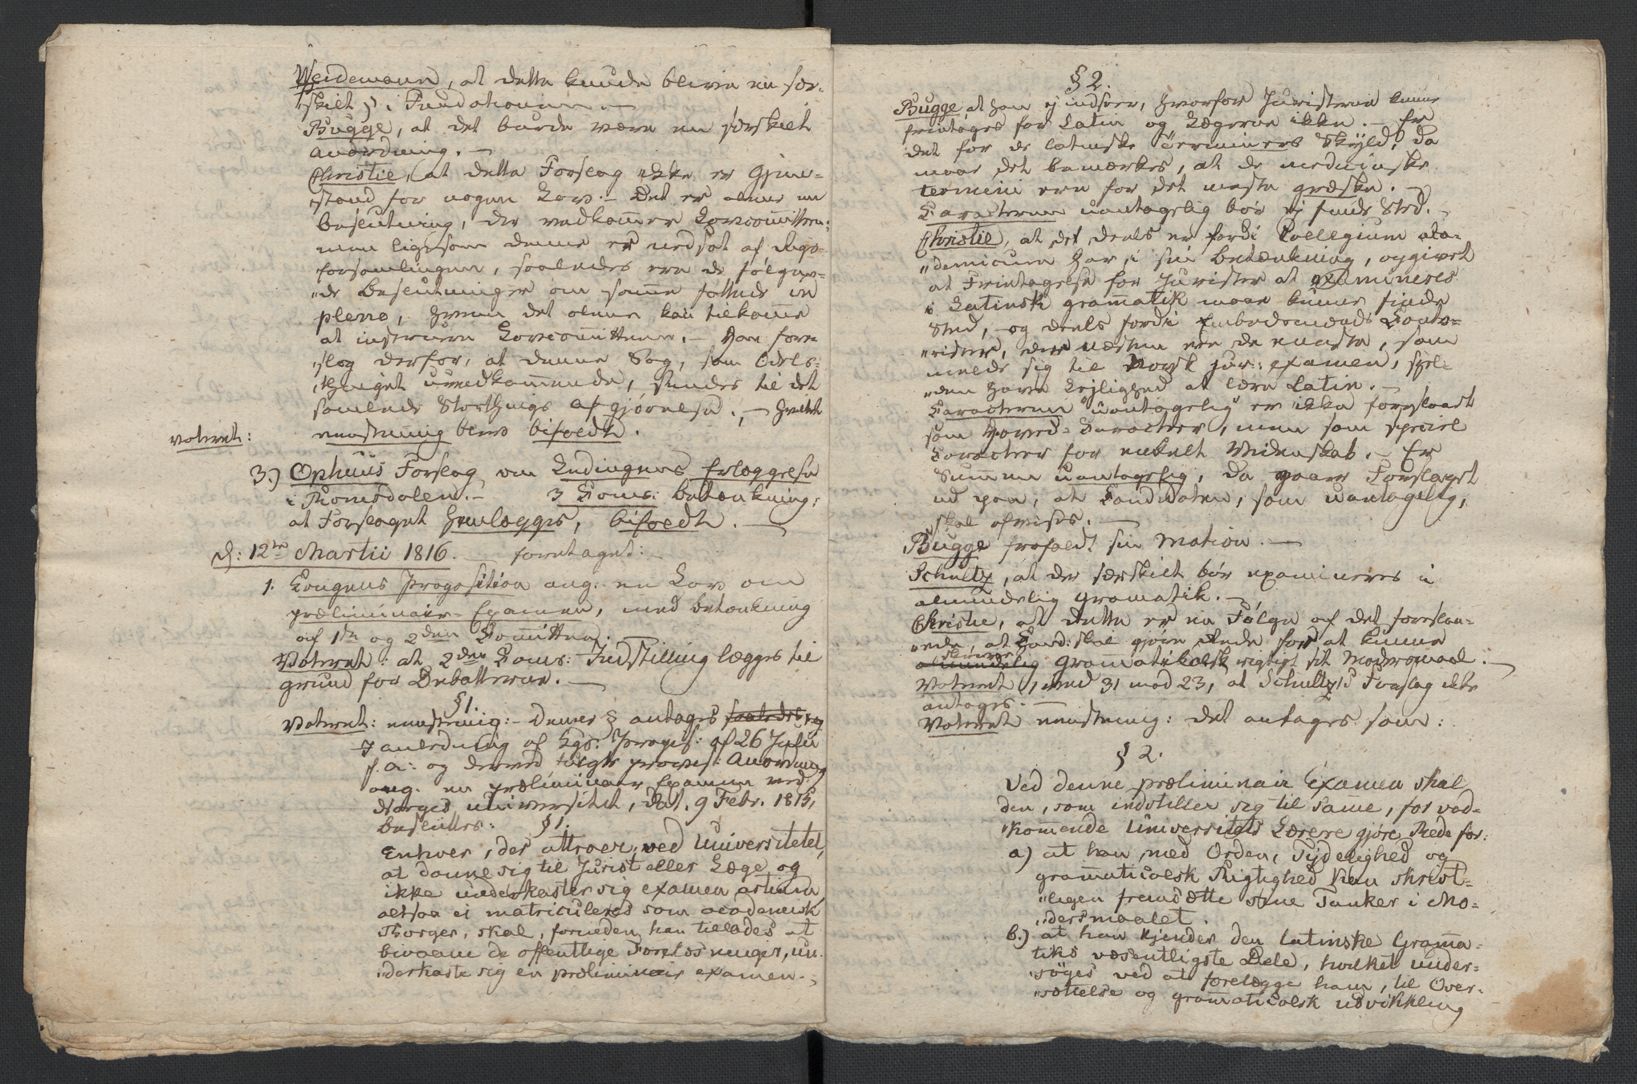 Weidemann, at dette kunde blive en sær-
skilt § i Fundationen. —
Bugge, at det burde være en særskilt
Anordning. —
Christie, at dette Forslag ikke er Gjen-
stand for nogen Lov. — Det er alene en
beslutning, der vedkommer Lovcommitteen;
men ligesom denne er nedsat af Rigs-
forsamlingen, saaledes ere de følgen-
de beslutninger om samme fattede in
pleno, hvem det alene kan tilkomme
at instruere Lovcommitteen. — Han fore-
slog derfor, at denne Sag, som Odels-
thinget uvedkommende, sendes til det
samlede Storthings Afgjørelse. — hvilket
Voteret:
eenstemmig blev bifaldt.
3.) Ophuus Forslag om Lndingens Erlæggelse
i Romsdalen. — 3 Coms: betænkning:
at Forslaget henlægges, bifaldt. —
d: 12te Martii 1816. foretaget:
1. Kongens Proposition ang: en Lov om
præliminair-Examen, med betænkning
af 1ste og 2den Committee.
Voteret: at 2den Coms: Indstilling lægges til
grund for Debatterne. —
§ 1.
Voteret: eenstemmig: — Denne § antages saaledes
I anledning af Kgs: Propos: af 26 Febr
f. A: og derved fulgte provis: Anordning
ang: en præliminair Examen ved
Norges Universitet, dat. 9 Febr. 1815,
besluttes: § 1.
Enhver, der attraaer, ved Universitetet,
at danne sig til Jurist eller Læge og
ikke underkaster sig examen artium,
altsaa ei matriculeres som academisk
Borger, skal, forinden han tillades at
bivaane de offentlige Forelæsninger, un-
derkaste sig en præliminair examen. —
§ 2.
Bugge at han ej indseer, hvorfor Juristerne kunne
fritages for Latin og Lægerne ikke. — Er
det for de latinske Terminers Skyld, da
maae det bemærkes, at de medicinske
termini ere for det meste græske. —
Caracteren uantagelig bør ej finde Sted. —
Christie, at det deels er fordi Collegium aca-
demicum har i sin betænkning, opgivet
at Fritagelse for Jurister at examineres
i Latinsk gramatik maae kunne finde
Sted, og deels fordi Embedsmænds Conto-
rister, der næsten ere de eneste, som
melde sig til Norsk jur: examen, sjel-
den have Lejlighed at lære Latin. —
Caracteren "uantagelig" er ikke foreslaaet
som Hoved-Caracter, men som speciel
Caracter for enkelt Videnskab. — Er
Summen uantagelig, da gaaer Forslaget
ud paa, at Candidaten, som uantagelig,
skal afvises. —
Bugge frafaldt sin Motion. —
Schultz, at der særskilt bør examineres i
almindelig gramatik. —
Christie, at dette er en Følge af det foreslaa-
ede, at Cand: skal gjøre Rede for at kunne
almindelig gramatikalsk rigtigt sit Modersmaal. —
Voteret, med 31 mod 23, at Schultz's Forslag ikke
antages. —
Voteret eenstemmig: det antages som:
§ 2.
Ved denne præliminair Examen skal
den, som indstiller sig til samme, for ved-
kommende Universitets Lærere gjøre Rede for:
a) at han med Orden, Tydelighed og
gramaticalsk Rigtighed kan skrivt-
ligen fremsætte sine Tanker i Mo-
dersmaalet.
b.) at han kjender den latinske Grama-
tiks væsentligste Dele, hvilket under-
søges ved at forelægge ham, til Over-
sættelse og gramaticalsk udvikkling